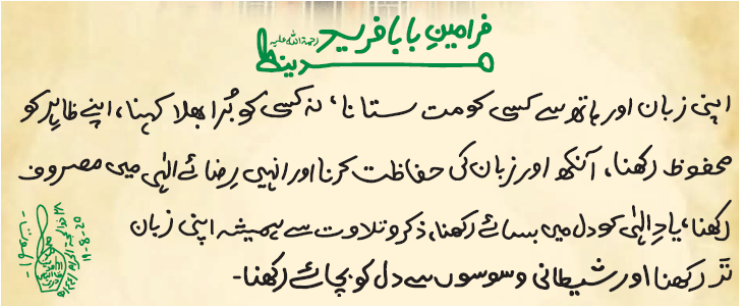 فرامینِ بابا فرید رحمۃ اللہ علیہ
اپنی زبان اور ہاتھ سے کسی کو مت ستانا، نہ کسی کو بُرا بھلا کہنا، اپنے ظاہر کو
محفوظ رکھنا، آنکھ اور زبان کی حفاظت کرنا اور انہیں رِضائے الٰہی میں مصروف
رکھنا، یادِ الٰہی کو دل میں بسائے رکھنا، ذکر و تلاوت سے ہمیشہ اپنی زبان
تَر رکھنا اور شیطانی وسوسوں سے دل کو بچائے رکھنا۔